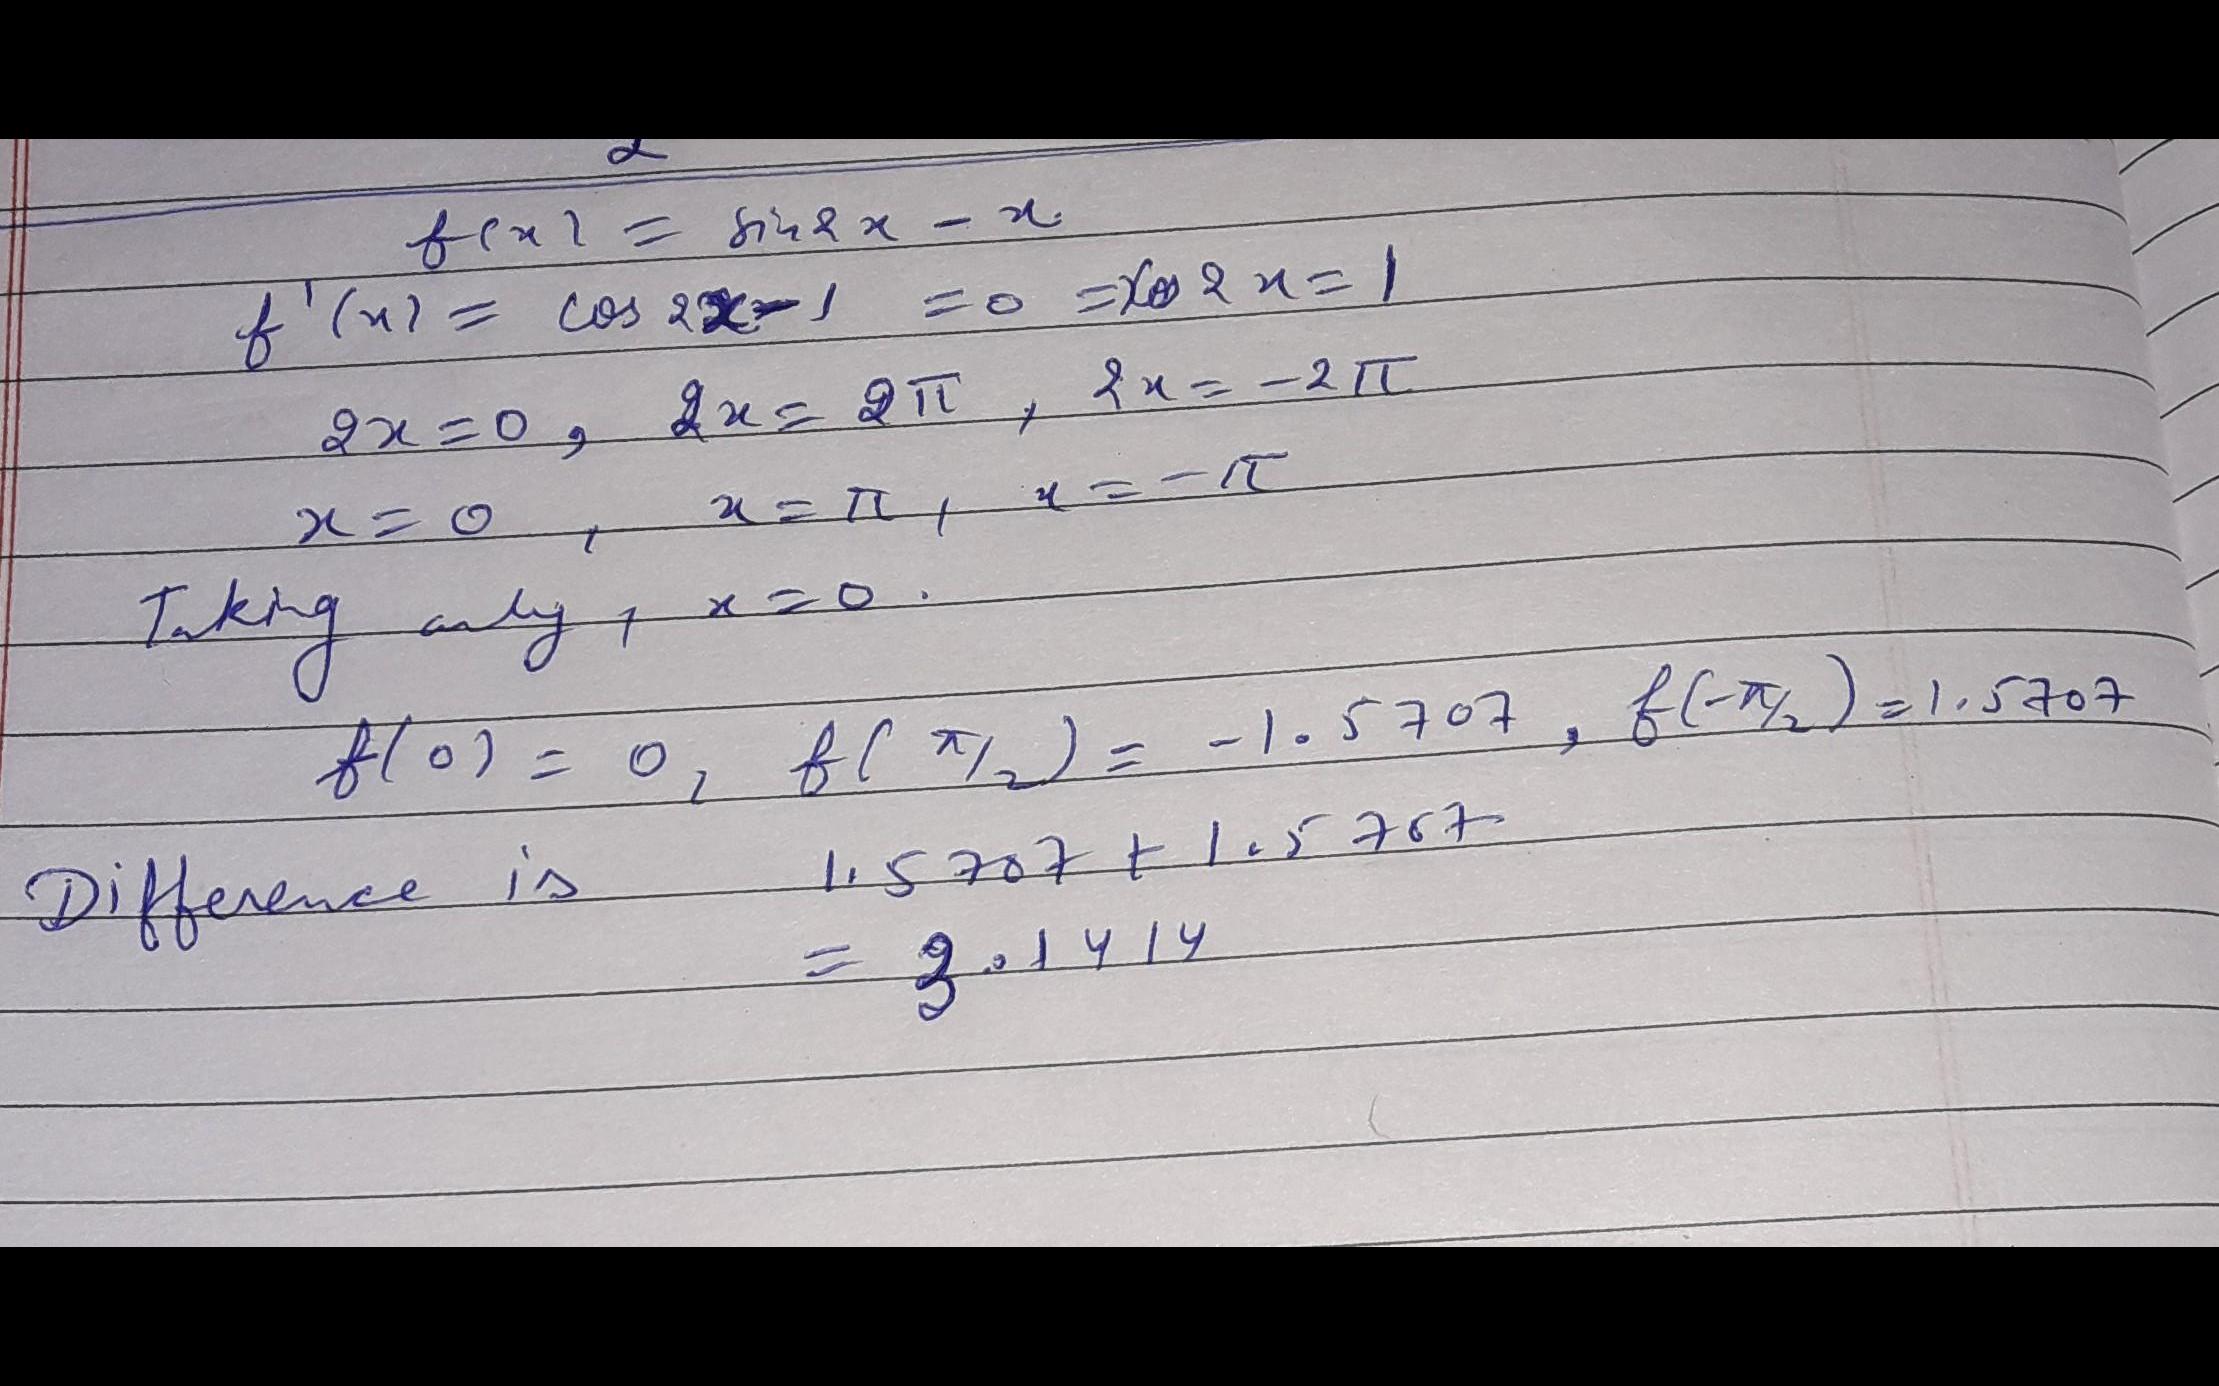 2
f(x) = sin2x - x.
f'(x) = cos 2x-1 = 0 = cos 2x = 1
2x = 0, 2x = 2π, 2x = -2π
x = 0, x = π, x = -π
Taking only, x = 0.
f(0) = 0, f(π/2) = -1.5707, f(-π/2) = 1.5707
Difference is 1.5707 + 1.5707
= 3.1414